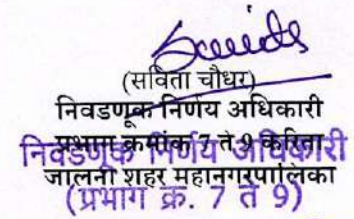 (सविता चौधर)
निवडणूक निर्णय अधिकारी
प्रभाग क्रमांक 7 ते 9 करिता
निवडणूक निर्णय अधिकारी
जालना शहर महानगरपालिका
(प्रभाग क्र. 7 ते 9)